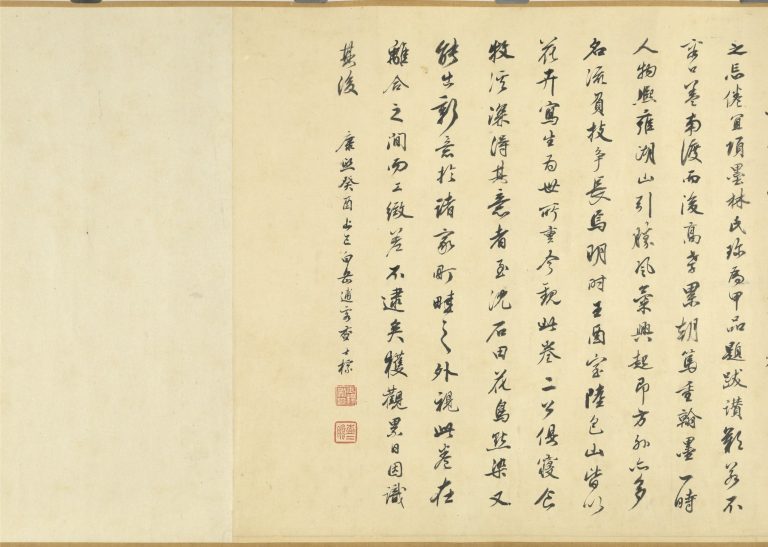 之忘倦宜項墨林氏珎為甲品題跋讚歎若不
容口蓋南渡而後高孝累朝篤重翰墨一時
人物熈雍湖山引勝風氣興起即方外亦多
名流負技爭長焉明時王酉室陸包山皆以
花卉寫生為世所重今觀此卷二公俱寢食
牧溪深得其意者至沈石田花鳥點染又
能出新意於諸家町畦之外視此卷在
離合之間而工緻差不逮矣獲觀累日因識
其後 康熙癸酉上巳白岳逋客查士標